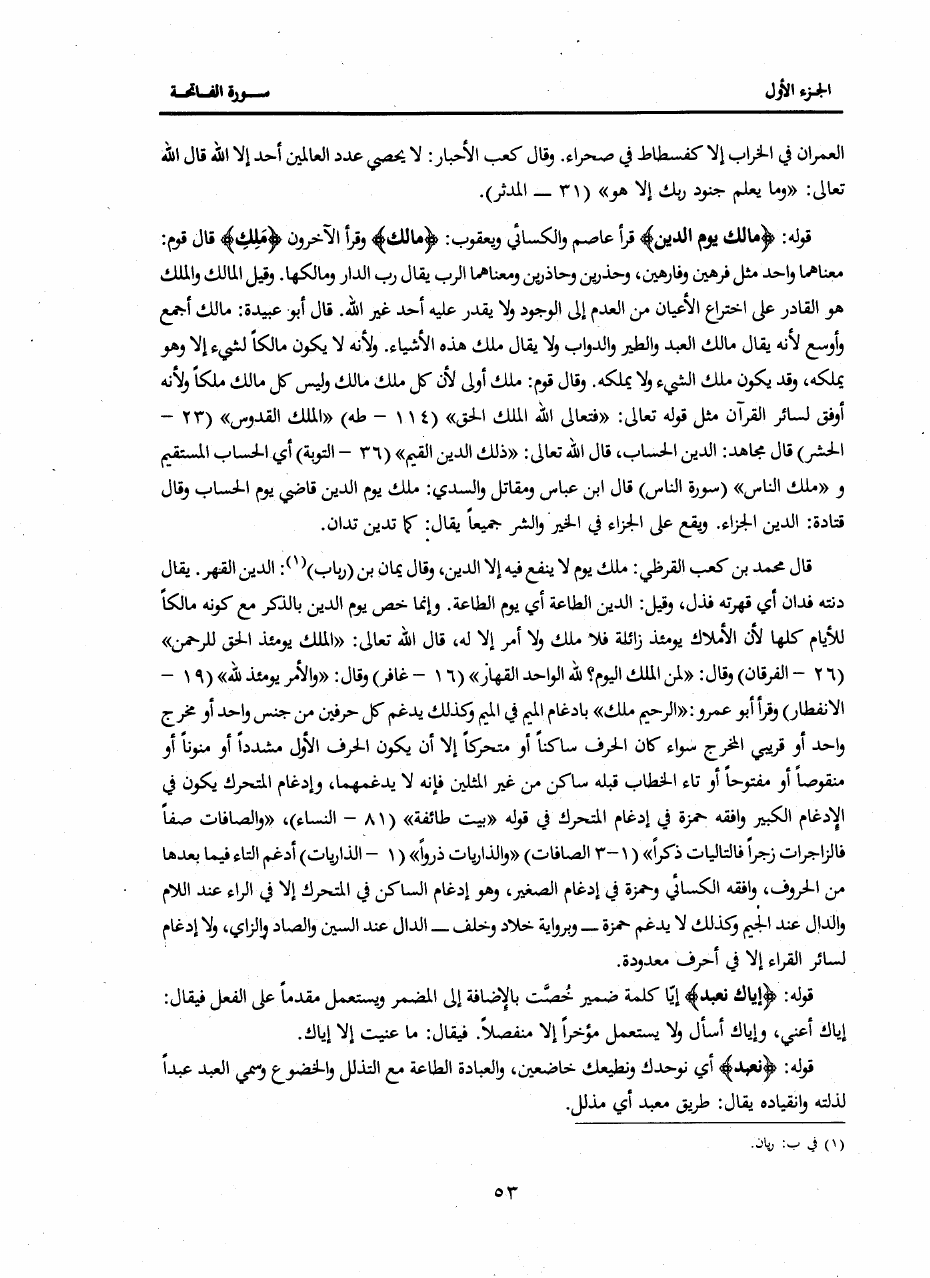 الجزء الأول
سورة الفاتحة
العمران في الخراب إلا كفسطاط في صحراء. وقال كعب الأحبار: لا يحصي عدد العالمين أحد إلا الله قال الله
تعالى: «وما يعلم جنود ربك إلا هو» (٣١ – المدثر).
قوله: ﴿مالك يوم الدين﴾ قرأ عاصم والكسائي ويعقوب: ﴿مالك﴾ وقرأ الآخرون ﴿مَلِكِ﴾ قال قوم:
معناهما واحد مثل فرهين وفارهين، وحذرين وحاذرين ومعناهما الرب يقال رب الدار ومالكها. وقيل المالك والملك
هو القادر على اختراع الأعيان من العدم إلى الوجود ولا يقدر عليه أحد غير الله. قال أبو عبيدة: مالك أجمع
وأوسع لأنه يقال مالك العبد والطير والدواب ولا يقال ملك هذه الأشياء. ولأنه لا يكون مالكاً لشيء إلا وهو
يملكه، وقد يكون ملك الشيء ولا يملكه. وقال قوم: ملك أولى لأن كل ملك مالك وليس كل مالك ملكاً ولأنه
أوفق لسائر القرآن مثل قوله تعالى: «فتعالى الله الملك الحق» (١١٤ – طه) «الملك القدوس» (٢٣ –
الحشر) قال مجاهد: الدين الحساب، قال الله تعالى: «ذلك الدين القيم» (٣٦ – التوبة) أي الحساب المستقيم
و «ملك الناس» (سورة الناس) قال ابن عباس ومقاتل والسدي: ملك يوم الدين قاضي يوم الحساب وقال
قتادة: الدين الجزاء. ويقع على الجزاء في الخير والشر جميعاً يقال: كما تدين تدان.
قال محمد بن كعب القرظي: ملك يوم لا ينفع فيه إلا الدين، وقال يمان بن (رباب)(١): الدين القهر. يقال
دنته فدان أي قهرته فذل، وقيل: الدين الطاعة أي يوم الطاعة. وإنما خص يوم الدين بالذكر مع كونه مالكاً
للأيام كلها لأن الأملاك يومئذ زائلة فلا ملك ولا أمر إلا له، قال الله تعالى: «الملك يومئذ الحق للرحمن»
(٢٦ – الفرقان) وقال: «لمن الملك اليوم؟ لله الواحد القهار» (١٦ – غافر) وقال: «والأمر يومئذ لله» (١٩ –
الانفطار) وقرأ أبو عمرو: «الرحيم ملك» بادغام الميم في الميم وكذلك يدغم كل حرفين من جنس واحد أو مخرج
واحد أو قريبي المخرج سواء كان الحرف ساكناً أو متحركاً إلا أن يكون الحرف الأول مشدداً أو منوناً أو
منقوصاً أو مفتوحاً أو تاء الخطاب قبله ساكن من غير المثلين فإنه لا يدغمهما، وإدغام المتحرك يكون في
الإدغام الكبير وافقه حمزة في إدغام المتحرك في قوله «بيت طائفة» (٨١ – النساء)، «والصافات صفاً
فالزاجرات زجراً فالتاليات ذكراً» (١-٣ الصافات) «والذاريات ذرواً» (١ – الذاريات) أدغم التاء فيما بعدها
من الحروف، وافقه الكسائي وحمزة في إدغام الصغير، وهو إدغام الساكن في المتحرك إلا في الراء عند اللام
والدال عند الجيم وكذلك لا يدغم حمزة – وبرواية خلاد وخلف – الدال عند السين والصاد والزاي، ولا إدغام
لسائر القراء إلا في أحرف معدودة.
قوله: ﴿إياك نعبد﴾ إيّا كلمة ضمير خُصَّت بالإضافة إلى المضمر ويستعمل مقدماً على الفعل فيقال:
إياك أعني، وإياك أسأل ولا يستعمل مؤخراً إلا منفصلاً. فيقال: ما عنيت إلا إياك.
قوله: ﴿نعبد﴾ أي نوحدك ونطيعك خاضعين، والعبادة الطاعة مع التذلل والخضوع وسمي العبد عبداً
لذلته وانقياده يقال: طريق معبد أي مذلل.
(١) في ب: ريان.
٥٣